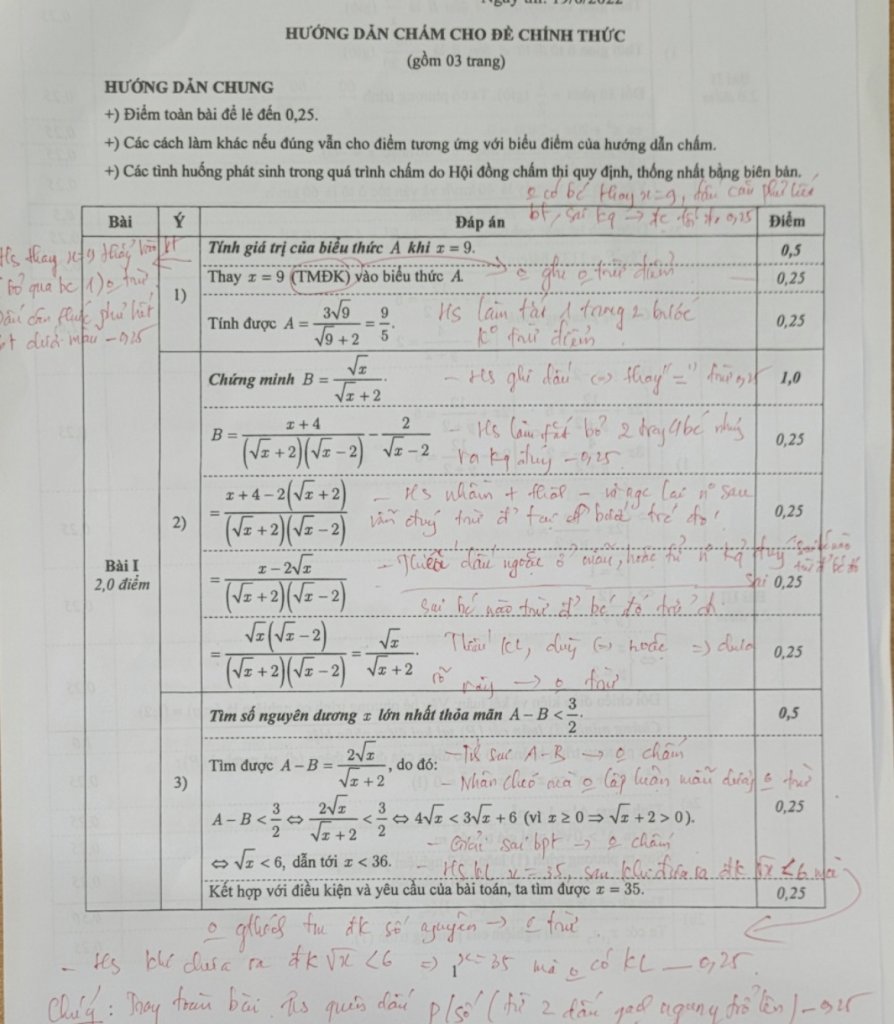 Ngày thi: 19/6/2022
HƯỚNG DẪN CHẤM CHO ĐỀ CHÍNH THỨC
(gồm 03 trang)
HƯỚNG DẪN CHUNG
+) Điểm toàn bài để lẻ đến 0,25.
+) Các cách làm khác nếu đúng vẫn cho điểm tương ứng với biểu điểm của hướng dẫn chấm.
+) Các tình huống phát sinh trong quá trình chấm do Hội đồng chấm thi quy định, thống nhất bằng biên bản.
o có bc thay x=9, dấu căn phủ
bt, sai kq → 0,25
Bài Ý Đáp án Điểm
Tính giá trị của biểu thức A khi x = 9. 0,5
Hs thay x=9
bỏ qua bc 1) o trừ
Dấu căn phủ hết
dưới mẫu -0,25
1)
Thay x = 9 (TMĐK) vào biểu thức A. o ghi o trừ điểm 0,25
Tính được A = 3√9/(√9 + 2) = 9/5. Hs làm tắt 1 trong 2 bước 0,25
k° trừ điểm
Chứng minh B = √x/(√x + 2). - Hs ghi dấu ⇔ thay "=" trừ 0,25 1,0
B = (x + 4)/((√x + 2)(√x − 2)) − 2/(√x − 2) - Hs làm tắt bỏ 2 trong 4 bc nhưng 0,25
ra kq đúng -0,25
2)
= (x + 4 − 2(√x + 2))/((√x + 2)(√x − 2)) - Hs nhầm + thành - và ngc lại sau 0,25
vẫn đúng trừ đ tại bước đó
Bài I
2,0 điểm
= (x − 2√x)/((√x + 2)(√x − 2)) - Thiếu dấu ngoặc ở mẫu, hoặc tử kq đúng 0,25
sai bc nào trừ đ bc đó
= √x(√x − 2)/((√x + 2)(√x − 2)) = √x/(√x + 2). Thiếu KL, dùng ⇔ hoặc ⇒ 0,25
→ o trừ
Tìm số nguyên dương x lớn nhất thỏa mãn A − B < 3/2. 0,5
3)
Tìm được A − B = 2√x/(√x + 2), do đó: - sai A-B → o chấm
- Nhân chéo mà o lập luận mẫu dương o trừ
A − B < 3/2 ⇔ 2√x/(√x + 2) < 3/2 ⇔ 4√x < 3√x + 6 (vì x ≥ 0 ⇒ √x + 2 > 0). 0,25
- Giải sai bpt → o chấm
⇔ √x < 6, dẫn tới x < 36. - Hs kl x = 35, sau khi đưa ra đk √x < 6 mà
Kết hợp với điều kiện và yêu cầu của bài toán, ta tìm được x = 35. 0,25
o đk số nguyên → o trừ
- Hs khi đưa ra đk √x < 6 ⇒ x = 35 mà o có KL - 0,25
Chú ý: Trong toàn bài Hs quên dấu p/số (từ 2 dấu gạch ngang trở lên) - 0,25